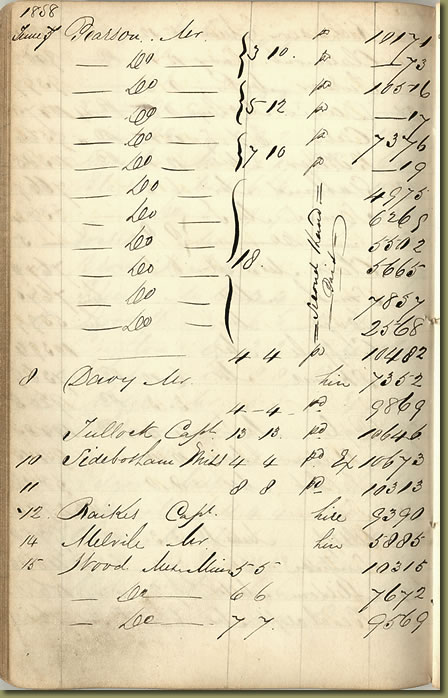 1858
June 7 Pearson Mr. } 3 10. pd 10171
— Do — pd — 73
— Do — } 5 12 pd 10516
— Do — pd — 17
— Do — } 7 10 pd 7376
— Do — pd — 19
— Do — 4975
— Do — 6268
— Do — 5502
— Do — } 18. Second Hand 5665
— Do — 7857
— Do — 2568
— 4 4 pd 10482
8 Davy Mr. hire 7352
4 - 4 - pd 9869
Tullock Capt. 13 13. pd 10646
10 Sidebotham Miss 4 4 pd Ex 10673
11 8 8 pd 10313
12 Raikes Capt. hire 9390
14 Melvile Mr. hire 5885
15 Wood 5 5 10315
— Do — 6 6 7672
— Do — 7 7. 9569